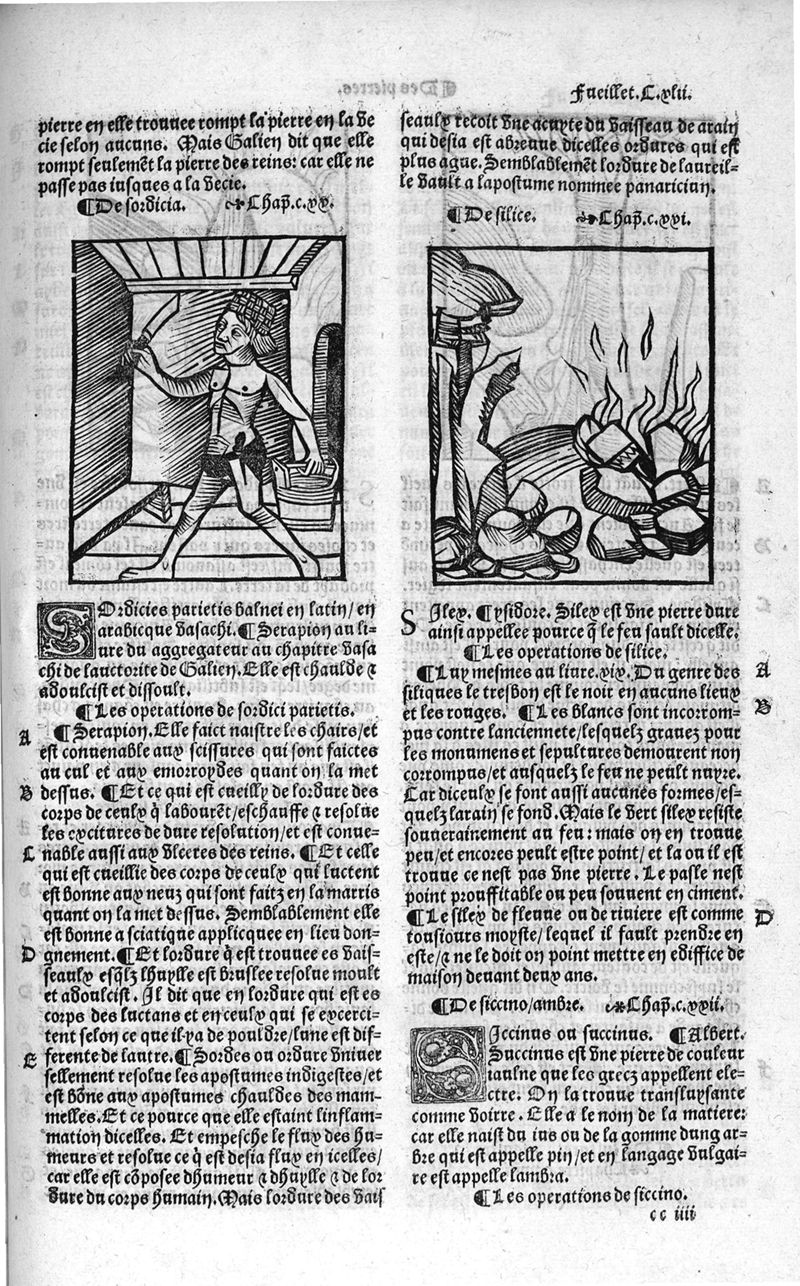 Fueillet.C.xlii.
pierre en elle trouuee rompt la pierre en la ve
cie selon aucuns. Mais Galien dit que elle
rompt seulemēt la pierre des reins: car elle ne
passe pas iusques a la vecie.
¶De sordicia. ❧Chap̄.c.xx.
SOrdicies parietis balnei en latin/en
arabicque vasachi.¶Serapion au li-
ure du aggregateur au chapitre vasa
chi de lauctorite de Galien. Elle est chaulde ⁊
adoulcist et dissoult.
¶Les operations de sordici parietis.
A ¶Serapion. Elle faict naistre les chairs/et
est conuenable aux scissures qui sont faictes
au cul et aux emorroydes quant on la met
B dessus. ¶Et ce qui est cueilly de lordure des
corps de ceulx q̄ labourēt/eschauffe ⁊ resolue
les excitures de dure resolution/et est conue-
C nable aussi aux vlceres des reins. ¶Et celle
qui est cueillie des corps de ceulx qui luctent
est bonne aux neuz qui sont faitz en la marris
quant on la met dessus. Semblablement elle
est bonne a sciatique applicquee en lieu don-
D gnement.¶Et lordure q̄ est trouuee es vais-
seaulx esq̄lz lhuylle est bruslee resolue moult
et adoulcist. Il dit que en lordure qui est es
corps des luctans et en ceulx qui se exerci-
tent selon ce que il ya de pouldre/lune est dif-
E ferente de lautre.¶Sordes ou ordure vniuer
sellement resolue les apostumes indigestes/et
est bōne aux apostumes chauldes des mam-
melles. Et ce pource que elle estaint linflam-
mation dicelles. Et empesche le flux des hu-
meurs et resolue ce q̄ est desia flux en icelles/
car elle est cōposee dhumeur ⁊ dhuylle ⁊ de lor
dure du corps humain. Mais lordure des vais
seaulx recoit vne acuyte du vaisseau de arain
qui desia est abreuue dicelles ordures qui est
plus ague. Semblablemēt lordure de laureil-
le vault a lapostume nommee panaricium.
¶De silice. ❧Chap̄.c.xxi.
SIlex. ¶ysidore. Silex est vne pierre dure
ainsi appellee pource q̄ le feu sault dicelle.
¶Les operations de silice.
¶Luy mesmes au liure.xix. Du genre des A
siliques le tresbon est le noir en aucuns lieux
et les rouges. ¶Les blancs sont incorrom- B
pus contre lanciennete/lesquelz grauez pour
les monumens et sepultures demourent non
corrompus/et ausquelz le feu ne peult nuyre.
Car diceulx se font aussi aucunes formes/es-
quelz larain se fond. Mais le vert silex resiste
souuerainement au feu: mais on en trouue
peu/et encores peult estre point/et la ou il est
trouue ce nest pas vne pierre. Le passe nest
point prouffitable ou peu souuent en ciment.
¶Le silex de fleuue ou de riuiere est comme D
tousiours moyste/lequel il fault prendre en
este/⁊ ne le doit on point mettre en ediffice de
maison deuant deux ans.
¶De siccino/ambre. ❧Chap̄.c.xxii.
SIccinus ou succinus. ¶Albert.
Succinus est vne pierre de couleur
iaulne que les grecz appellent ele-
ctre. On la trouue transluysante
comme voirre. Elle a le nom de la matiere:
car elle naist du ius ou de la gomme dung ar-
bre qui est appelle pin/et en langage vulgai-
re est appelle lambra.
¶Les operations de siccino.
cc iiii